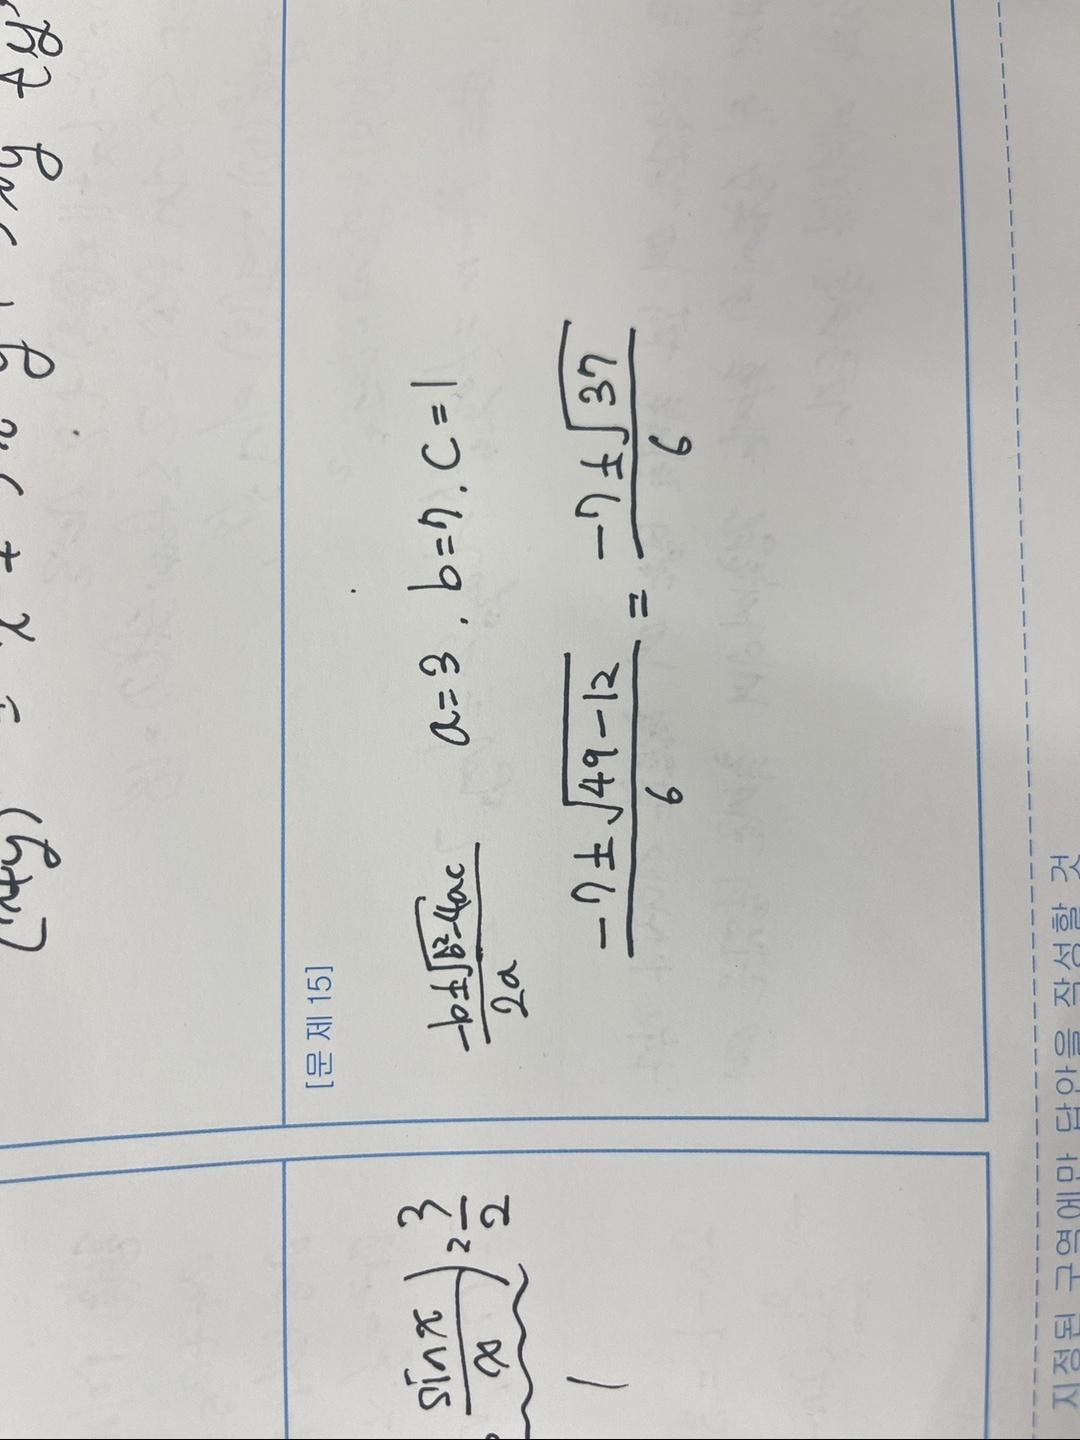 [문제 15]
-b±√b²-4ac / 2a   a=3. b=7. C=1
-7±√49-12 / 6 = -7±√37 / 6
(sinx / x)² 3/2
1
지정된 구역에만 답안을 작성할 것